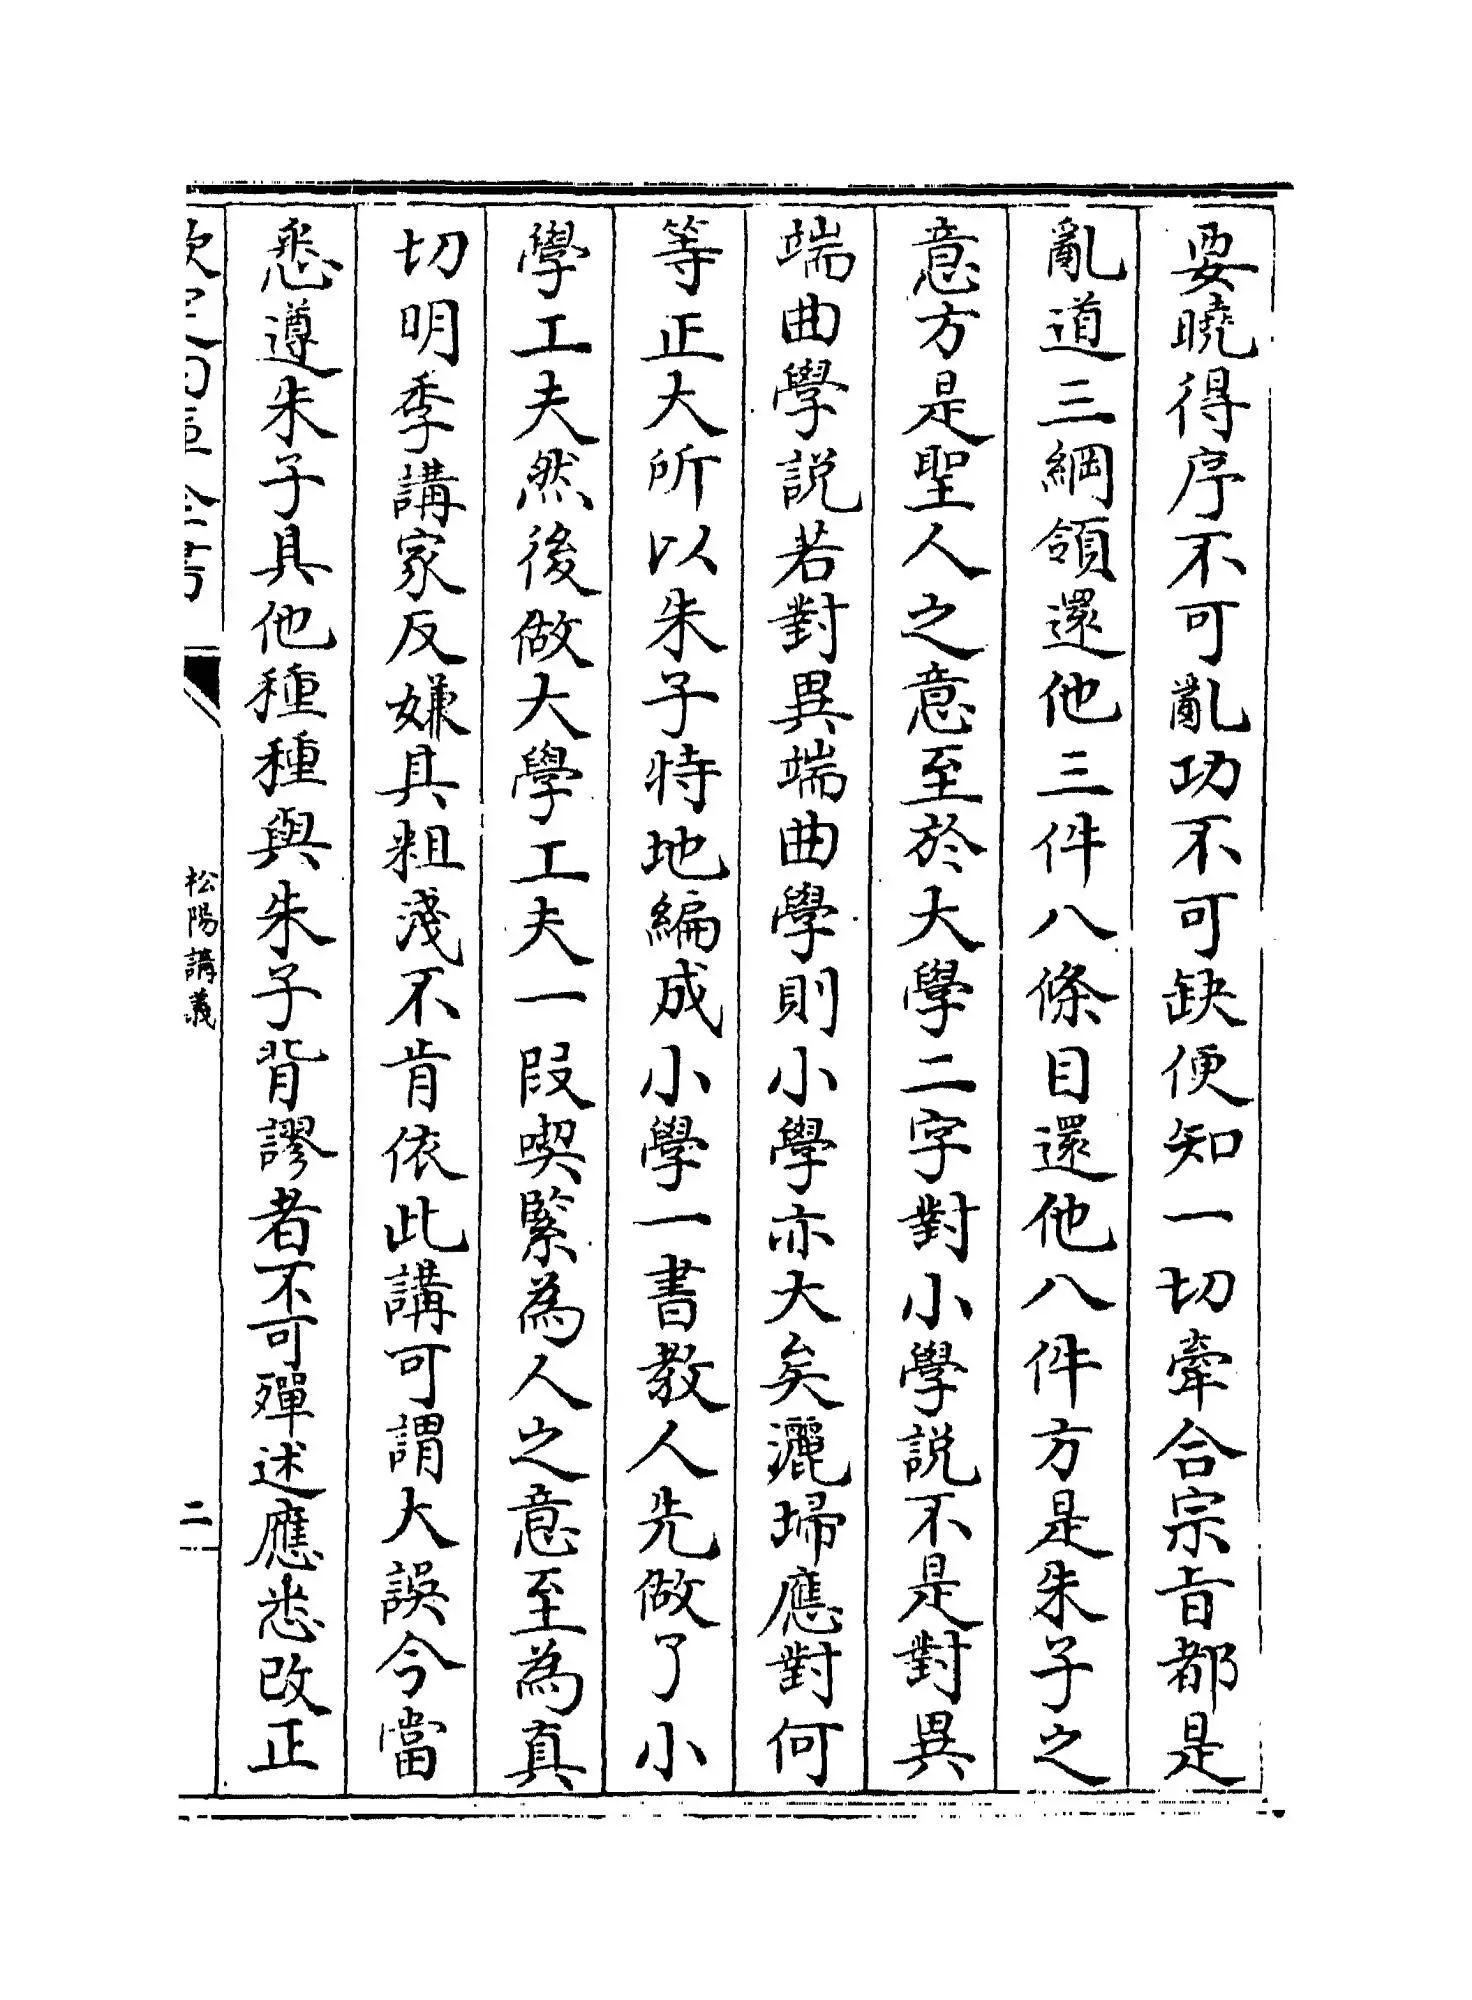 要曉得序不可亂功不可缺便知一切牽合宗旨都是
亂道三綱領還他三件八條目還他八件方是朱子之
意方是聖人之意至於大學二字對小學說不是對異
端曲學說若對異端曲學則小學亦大矣灑埽應對何
等正大所以朱子特地編成小學一書教人先做了小
學工夫然後做大學工夫一段喫緊為人之意至為真
切明季講家反嫌其粗淺不肯依此講可謂大誤今當
悉遵朱子其他種種與朱子背謬者不可殫述應悉改正
欽定四庫全書
松陽講義
二